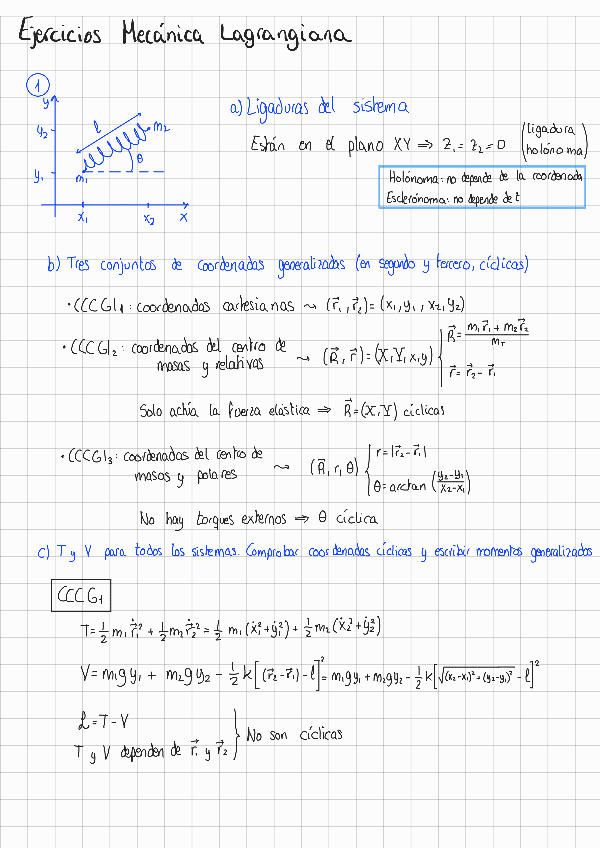 Ejercicios Mecánica Lagrangiana
1
y
y₂
y₁
l
m₂
θ
m₁
x₁ x₂ x
a) Ligaduras del sistema
Están en el plano XY ⇒ Z₁ = Z₂ = 0 (ligadura holónoma)
Holónoma: no depende de la coordenada
Esclerónoma: no depende de t
b) Tres conjuntos de coordenadas generalizadas (en segundo y tercero, cíclicas)
· CCCG|₁: coordenadas cartesianas ⤳ (r⃗₁, r⃗₂) = (x₁, y₁, x₂, y₂)
· CCCG|₂: coordenadas del centro de masas y relativas ⤳ (R⃗, r⃗) = (X, Y, x, y) { R⃗ = (m₁r⃗₁ + m₂r⃗₂)/m_T
r⃗ = r⃗₂ - r⃗₁
Solo actúa la fuerza elástica ⇒ R⃗ = (X, Y) cíclicas
· CCCG|₃: coordenadas del centro de masas y polares ⤳ (R⃗, r, θ) { r = |r⃗₂ - r⃗₁|
θ = arctan ((y₂-y₁)/(x₂-x₁))
No hay torques externos ⇒ θ cíclica
c) T y V para todos los sistemas. Comprobar coordenadas cíclicas y escribir momentos generalizados
CCCG₁
T = 1/2 m₁ ṙ⃗₁² + 1/2 m₂ ṙ⃗₂² = 1/2 m₁ (ẋ₁² + ẏ₁²) + 1/2 m₂ (ẋ₂² + ẏ₂²)
V = m₁gy₁ + m₂gy₂ - 1/2 k[(r⃗₂ - r⃗₁) - l]² = m₁gy₁ + m₂gy₂ - 1/2 k[√((x₂-x₁)² + (y₂-y₁)²) - l]²
ℒ = T - V
T y V dependen de r⃗₁ y r⃗₂ } No son cíclicas